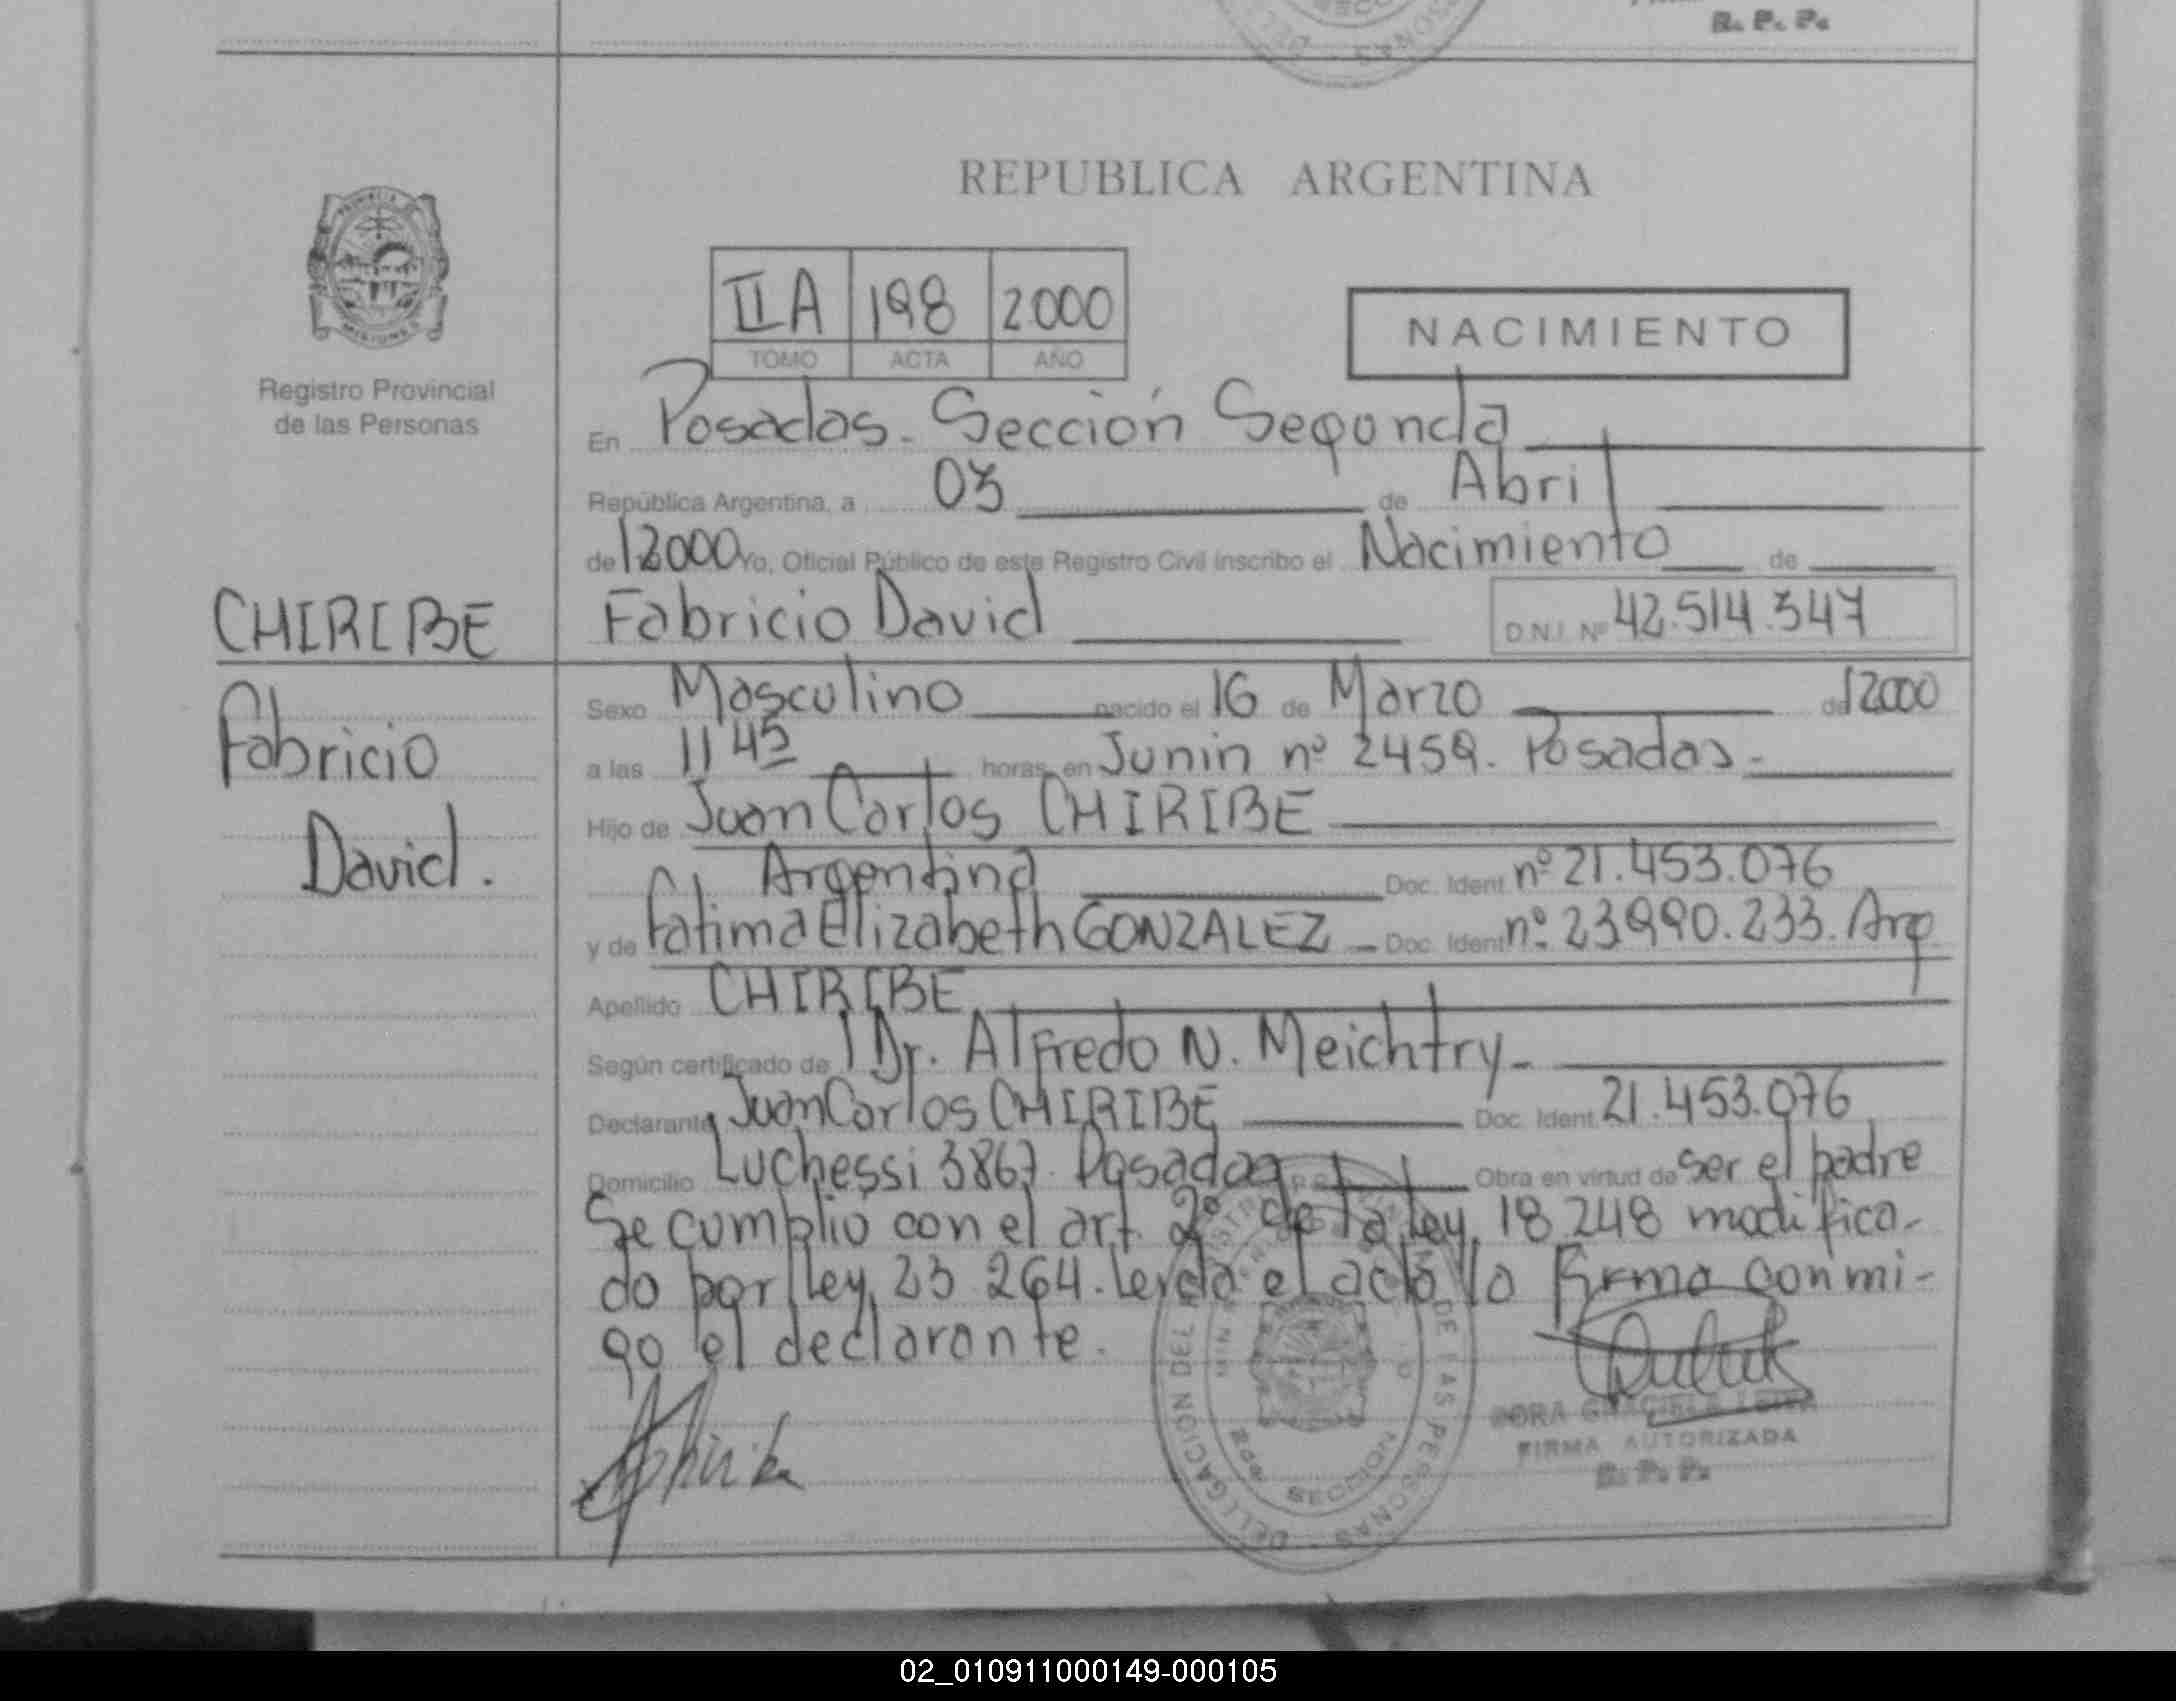 R. P. P.
REPUBLICA ARGENTINA
IIA 198 2000
TOMO ACTA AÑO
NACIMIENTO
Registro Provincial
de las Personas
En Posadas. Sección Segunda
República Argentina, a 03 de Abril
de 2000 Yo, Oficial Público de este Registro Civil inscribo el Nacimiento de
CHIRIBE
Fabricio David D.N.I. Nº 42.514.347
Fabricio
David.
Sexo Masculino nacido el 16 de Marzo de 2000
a las 11 45 horas, en Junin nº 2459. Posadas.
Hijo de Juan Carlos CHIRIBE
Argentina Doc. Ident. nº 21.453.076
y de Fatima Elizabeth GONZALEZ - Doc. Ident. nº 23990.233. Arg
Apellido CHIRIBE
Según certificado de Dr. Alfredo N. Meichtry-
Declarante Juan Carlos CHIRIBE Doc. Ident. 21.453.076
Domicilio Luchessi 3867. Posadas Obra en virtud de ser el padre
Se cumplio con el art 2º de la ley 18 248 modifica-
do por ley 23 264. leida el acta la firma conmi-
go el declarante.
DELEGACION DEL REGISTRO PROVINCIAL DE LAS PERSONAS
SECCION
FIRMA AUTORIZADA
R. P. P.
02_010911000149-000105